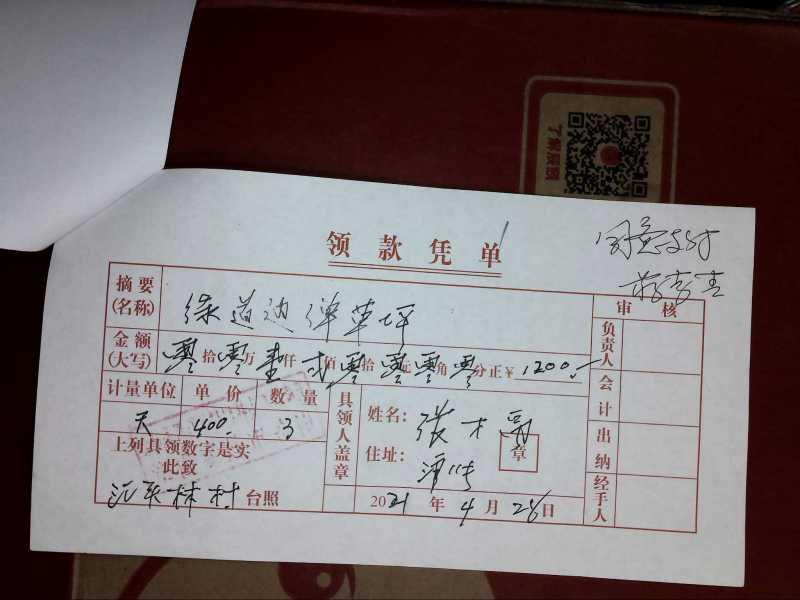 了解版图
领款凭单
同意支付
摘要(名称) 绿道边弹草坪
审核
金额(大写) 零拾零万壹仟贰佰零拾零元零角零分正￥1200.-
负责人
计量单位 单价 数量
天 400. 3
具领人盖章
姓名:张才
章
住址:
会计
上列具领数字是实
此致
出纳
林村台照
2021年4月28日
经手人